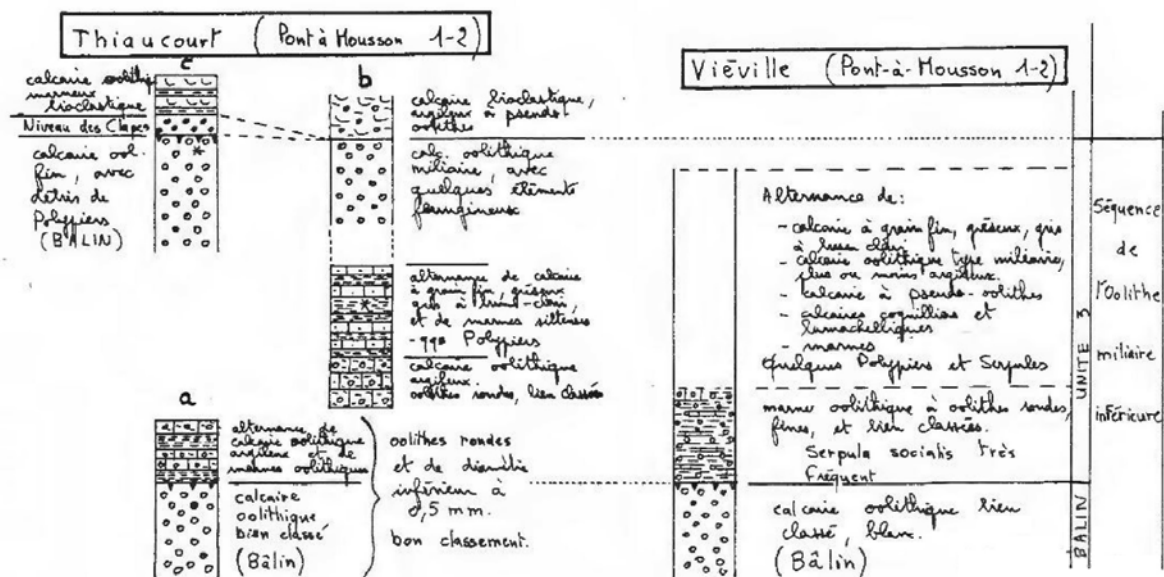 Thiaucourt (Pont à Mousson 1-2)
c
calcaire oolithiq
marneux
bioclastique
Niveau des Clapes
calcaire ool.
fin, avec
détris de
Polypiers
(BÂLIN)
b
calcaire bioclastique,
argileux à pseudo-
oolithes
calc. oolithique
miliaire, avec
quelques éléments
ferrugineux
alternance de calcaire
à grain fin, gréseux
gris à bleu-clair,
et de marnes silteuses
- qqs Polypiers
calcaire oolithique
argileux.
oolithes rondes, bien classées
a
alternance de
calcaire oolithique
argileux et de
marnes oolithiques
calcaire
oolithique
bien classé
(Bâlin)
oolithes rondes
et de diamètre
inférieur à
0,5 mm.
bon classement.
Viéville (Pont-à-Mousson 1-2)
Alternance de:
- calcaire à grain fin, gréseux, gris
à bleu clair
- calcaire oolithique type miliaire,
plus ou moins argileux.
- calcaire à pseudo-oolithes
- calcaires coquilliers et
lumachelliques
- marnes
Quelques Polypiers et Serpules
marne oolithique à oolithes rondes,
fines, et bien classées.
Serpula socialis très
fréquent
calcaire oolithique bien
classé, blanc.
(Bâlin)
UNITE 3
BÂLIN
Séquence
de
l'Oolithe
miliaire
inférieure